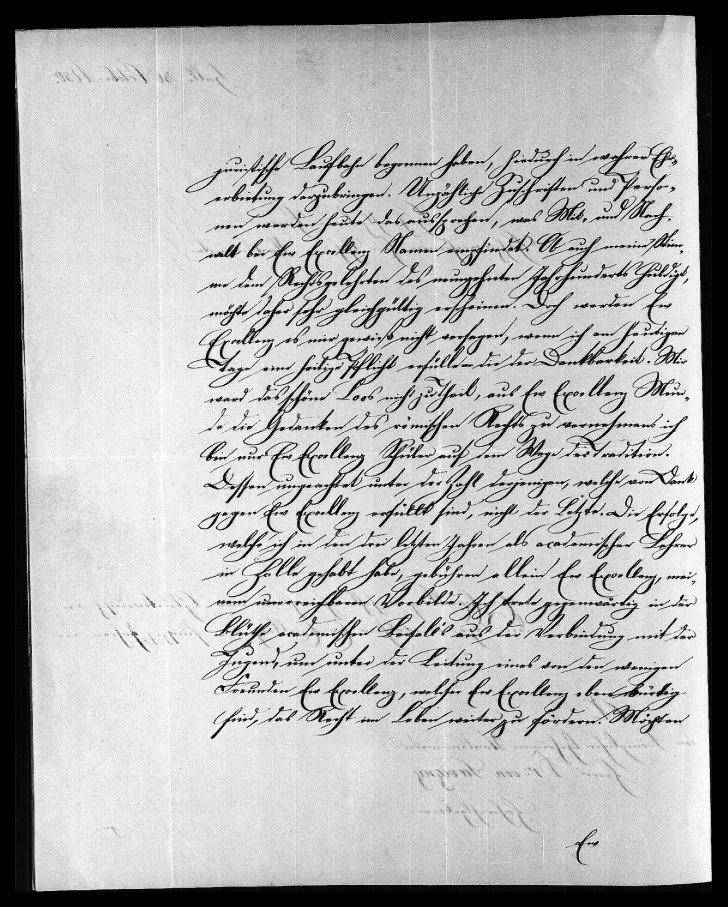 juristische Laufbahn begonnen haben, hiedurch in wahrer Ehr-
erbietung darzubringen. Unzählige Zuschriften und Perso-
nen werden heute das aussprechen, was Mit- und Nach-
walt bei Ew Excellenz Namen empfindet. Auch meine Stim-
me dem Rechtsgelehrten des neunzehnten Jahrhunderts huldigt,
möchte daher sehr gleichgültig erscheinen. Doch werden Ew
Excellenz es mir gewiß nicht versagen, wenn ich am heutigen
Tage eine heilige Pflicht erfülle – die der Dankbarkeit. Mir
ward das schöne Loos nicht zu Theil, aus Ew Excellenz Mun-
de die Gedanken des römischen Rechts zu vernehmen; ich
bin nur Ew Excellenz Schüler auf dem Wege der Tradition.
Dessen ungeachtet unter der Zahl derjenigen, welche von Dank
gegen Ew Excellenz erfüllt sind, nicht der Letzte. Die Erfolge,
welche ich in den drei letzten Jahren als academischer Lehrer
in Halle gehabt habe, gebühren allein Ew Excellenz, mei-
nem unerreichbaren Vorbilde. Ich trete gegenwärtig in der
Blüthe academischen Beifalls aus der Verbindung mit der
Jugend, um unter der Leitung eines von den wenigen
Freunden Ew Excellenz, welcher Ew Excellenz eben würdig
sind, das Recht im Leben weiter zu fördern. Möchten
Ew